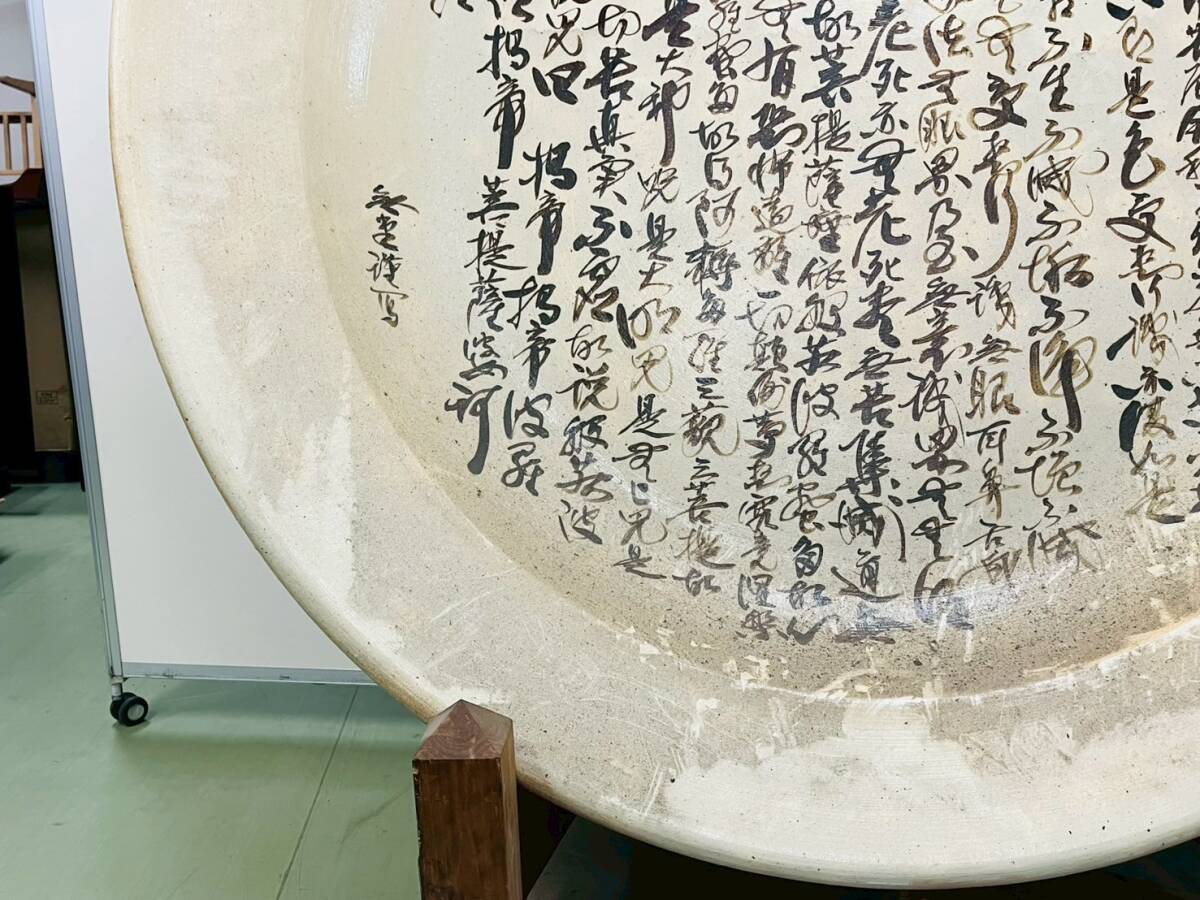 即是色受想行識亦復如是
不生不滅不垢不浄不増不減
無受想行識無眼耳鼻舌身
法無眼界乃至無意識界無無明
老死亦無老死尽無苦集滅道無
故菩提薩埵依般若波羅蜜多故心
無有恐怖遠離一切顛倒夢想究竟涅槃
羅蜜多故得阿耨多羅三藐三菩提故
是大神呪是大明呪是無上呪是
切苦真実不虚故説般若波
呪曰羯帝羯帝波羅
羯帝菩提薩婆訶
謹写